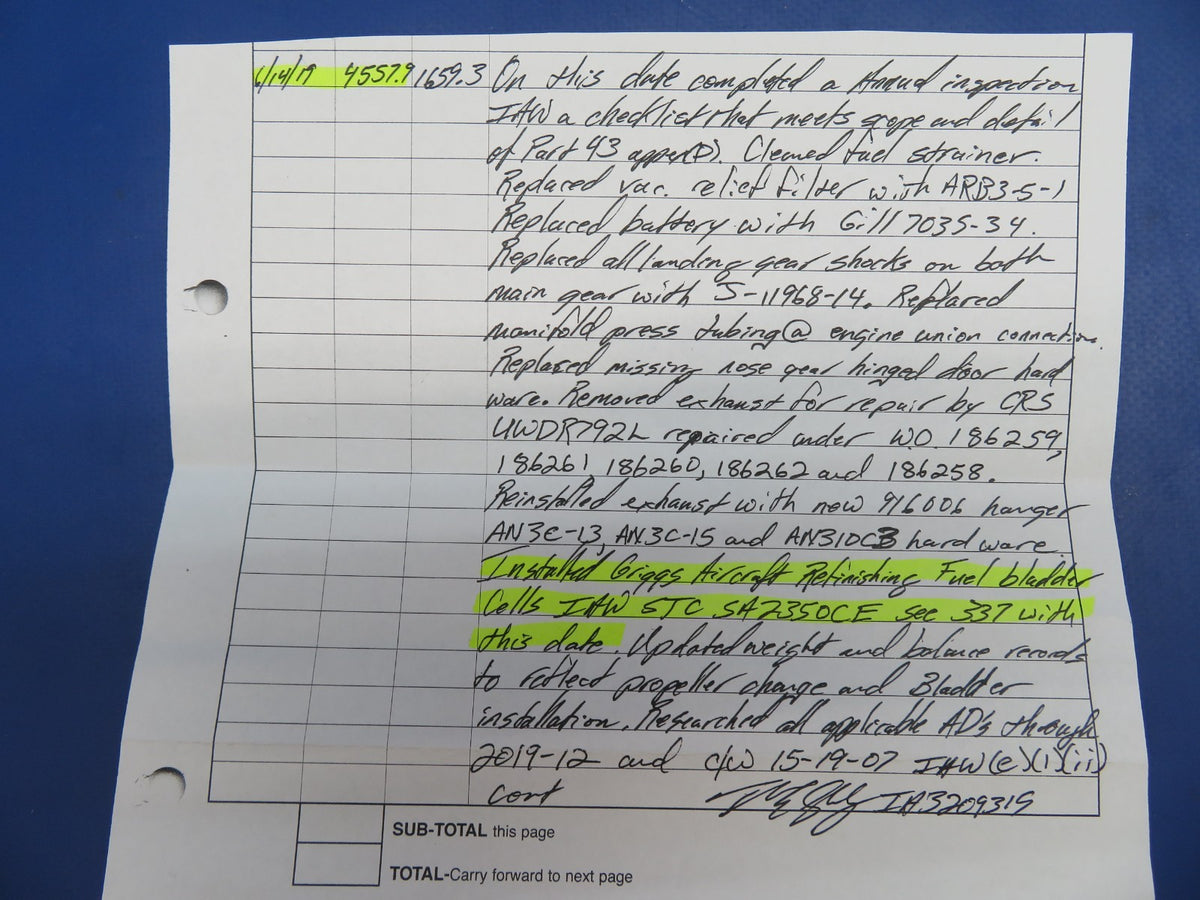 6/14/19 4557.9 1659.3 On this date completed a Annual inspection
IAW a checklist that meets scope and detail
of Part 43 appen(D). Cleaned fuel strainer.
Replaced vac. relief filter with ARB3-5-1
Replaced battery with Gill 7035-34.
Replaced all landing gear shocks on both
main gear with J-11968-14. Replaced
manifold press tubing @ engine union connection.
Replaced missing nose gear hinged door hard
ware. Removed exhaust for repair by CRS
UWDR792L repaired under WO 186259,
186261, 186260, 186262 and 186258.
Reinstalled exhaust with new 916006 hanger
AN3C-13, AN3C-15 and AN310C3 hard ware
Installed Griggs Aircraft Refinishing Fuel bladder
Cells IAW STC SA2350CE see 337 with
this date. Updated weight and balance records
to reflect propeller change and Bladder
installation. Researched all applicable AD's through
2019-12 and c/w 15-19-07 IAW(e)(1)(ii)
cont IA3209319
SUB-TOTAL this page
TOTAL-Carry forward to next page